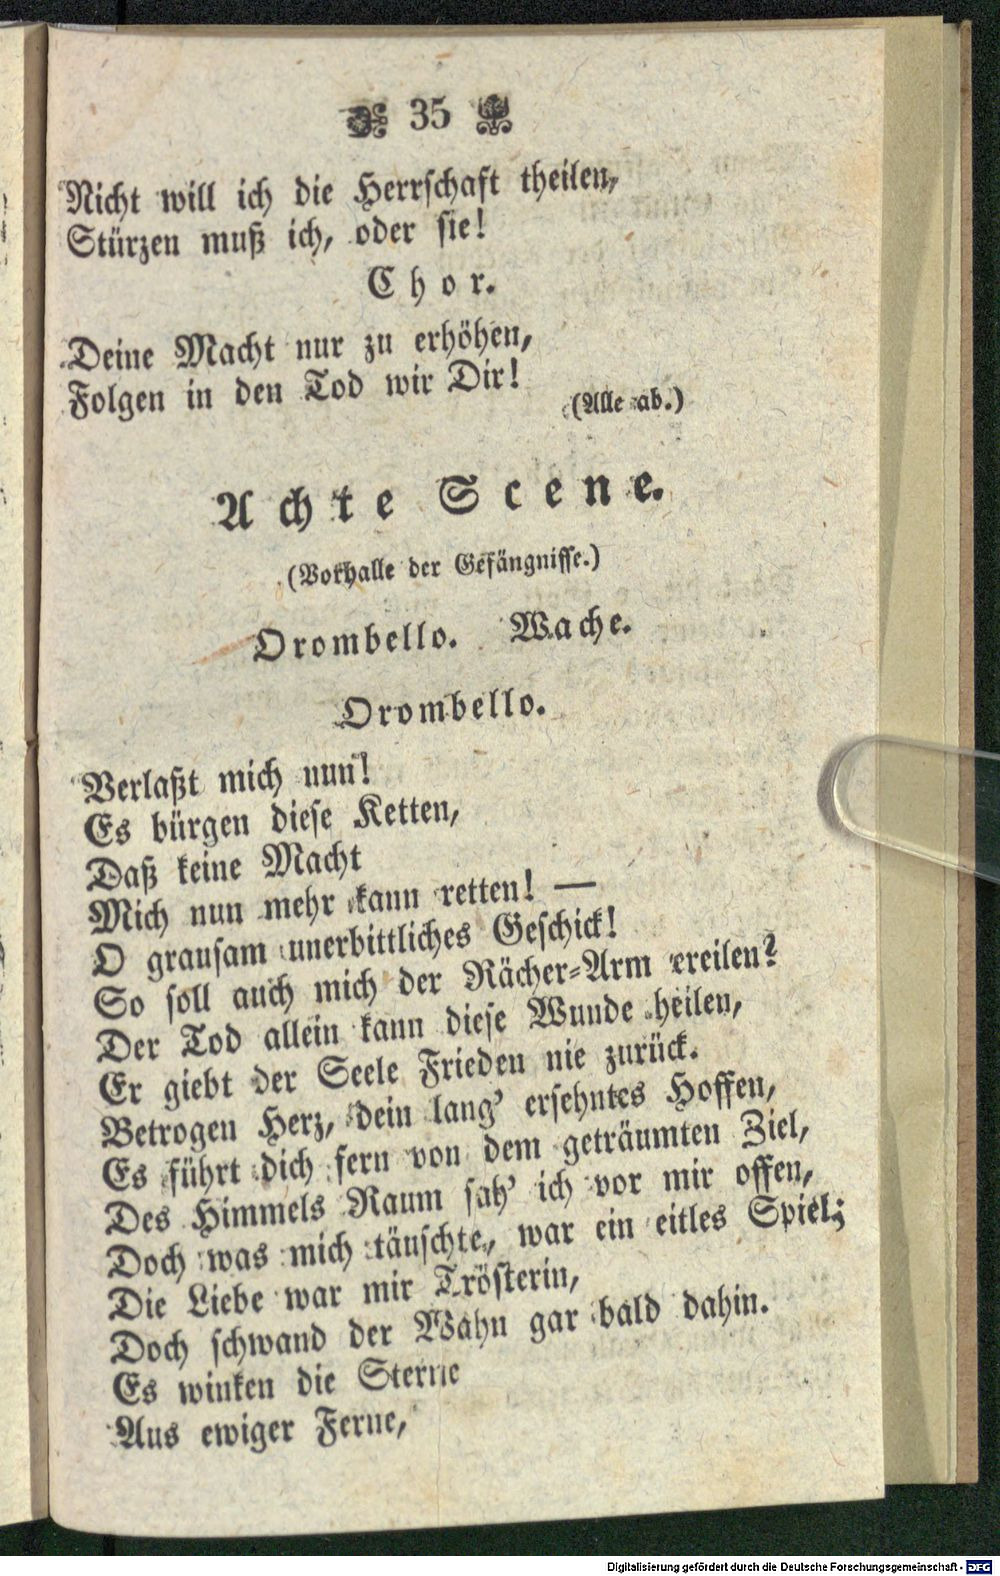 35
Nicht will ich die Herrschaft theilen,
Stürzen muß ich, oder sie!
Chor.
Deine Macht nur zu erhöhen,
Folgen in den Tod wir Dir!
(Alle ab.)
Achte Scene.
(Vorhalle der Gefängnisse.)
Orombello. Wache.
Orombello.
Verlaßt mich nun!
Es bürgen diese Ketten,
Daß keine Macht
Mich nun mehr kann retten! —
O grausam unerbittliches Geschick!
So soll auch mich der Rächer-Arm ereilen?
Der Tod allein kann diese Wunde heilen,
Er giebt der Seele Frieden nie zurück.
Betrogen Herz, dein lang' ersehntes Hoffen,
Es führt dich fern von dem geträumten Ziel,
Des Himmels Raum sah' ich vor mir offen,
Doch was mich täuschte, war ein eitles Spiel;
Die Liebe war mir Trösterin,
Doch schwand der Wahn gar bald dahin.
Es winken die Sterne
Aus ewiger Ferne,
Digitalisierung gefördert durch die Deutsche Forschungsgemeinschaft - DFG